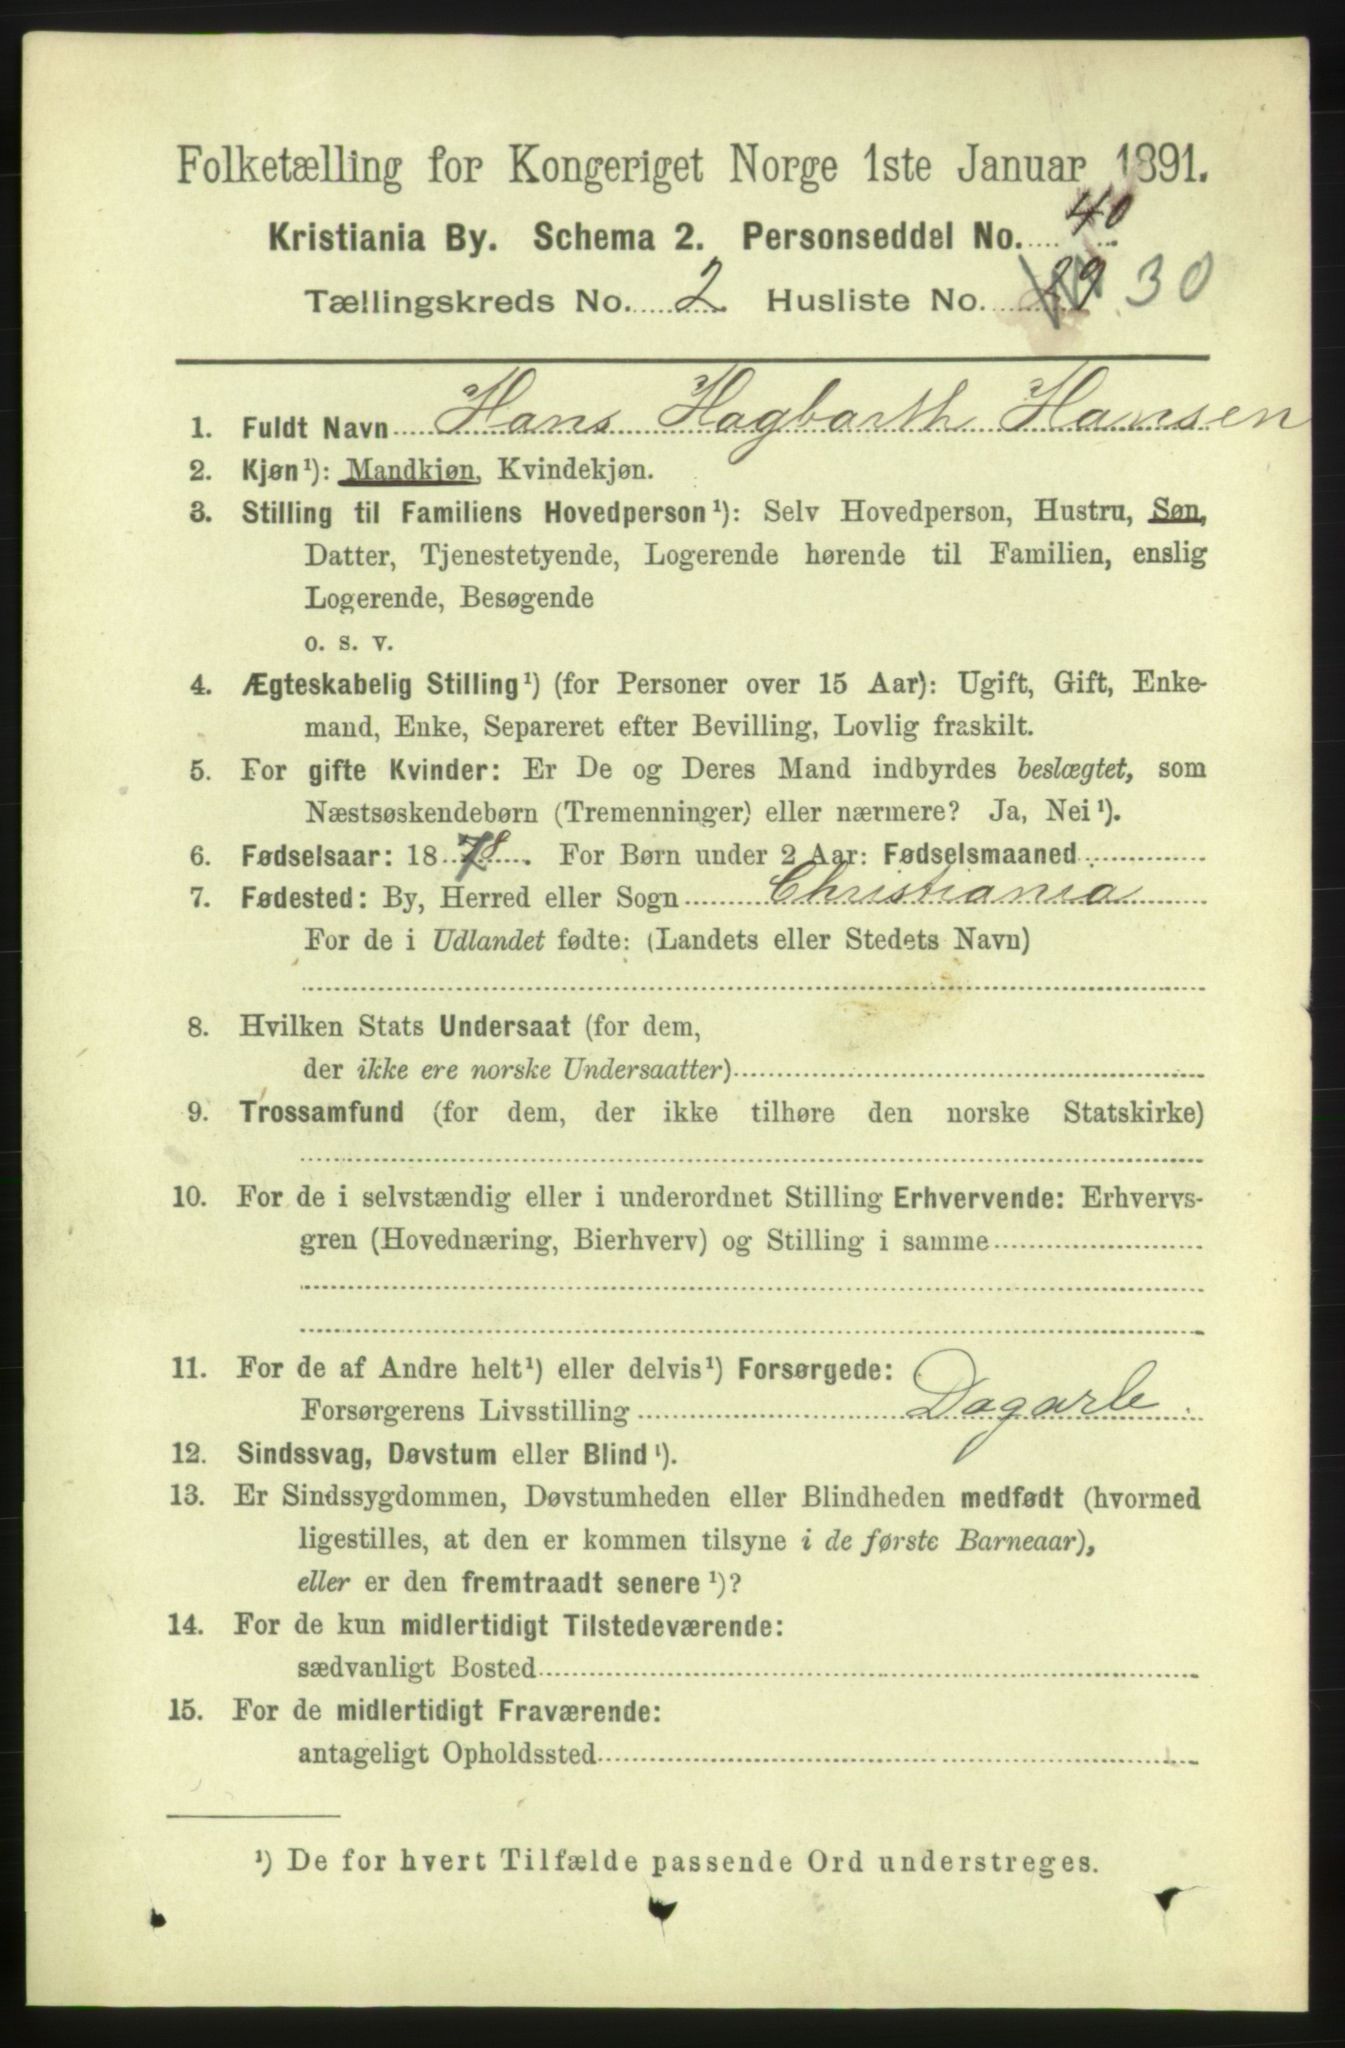 Folketælling for Kongeriget Norge 1ste Januar 1891.
Kristiania By. Schema 2. Personseddel No. 40
Tællingskreds No. 2 Husliste No. 29 30
1. Fuldt Navn Hans Hagbarth Hansen
2. Kjøn¹): Mandkjøn, Kvindekjøn.
3. Stilling til Familiens Hovedperson¹): Selv Hovedperson, Hustru, Søn,
Datter, Tjenestetyende, Logerende hørende til Familien, enslig
Logerende, Besøgende
o. s. v.
4. Ægteskabelig Stilling¹) (for Personer over 15 Aar): Ugift, Gift, Enke-
mand, Enke, Separeret efter Bevilling, Lovlig fraskilt.
5. For gifte Kvinder: Er De og Deres Mand indbyrdes beslægtet, som
Næstsøskendebørn (Tremenninger) eller nærmere? Ja, Nei¹).
6. Fødselsaar: 1878. For Børn under 2 Aar: Fødselsmaaned
7. Fødested: By, Herred eller Sogn Christiania
For de i Udlandet fødte: (Landets eller Stedets Navn)
8. Hvilken Stats Undersaat (for dem,
der ikke ere norske Undersaatter)
9. Trossamfund (for dem, der ikke tilhøre den norske Statskirke)
10. For de i selvstændig eller i underordnet Stilling Erhvervende: Erhvervs-
gren (Hovednæring, Bierhverv) og Stilling i samme
11. For de af Andre helt¹) eller delvis¹) Forsørgede:
Forsørgerens Livsstilling Dagarb.
12. Sindssvag, Døvstum eller Blind¹).
13. Er Sindssygdommen, Døvstumheden eller Blindheden medfødt (hvormed
ligestilles, at den er kommen tilsyne i de første Barneaar),
eller er den fremtraadt senere¹)?
14. For de kun midlertidigt Tilstedeværende:
sædvanligt Bosted
15. For de midlertidigt Fraværende:
antageligt Opholdssted
¹) De for hvert Tilfælde passende Ord understreges.